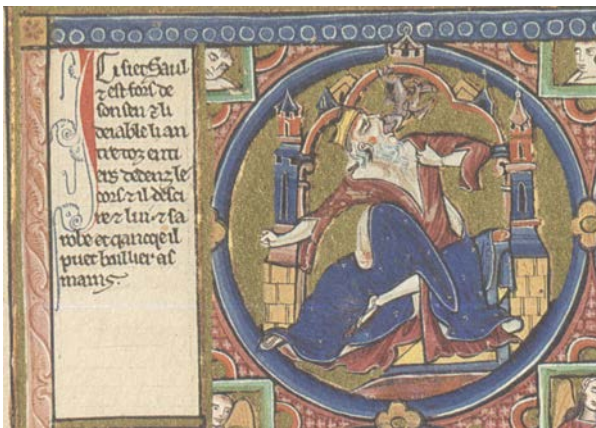 Ci siet Saul
⁊ est fors de
son sen ⁊ li
deiable li an
tre toz enti
ers dedenz le
cors ⁊ il desci
re ⁊ lui ⁊ sa
robe et qancqe il
puet baillier as
mains.